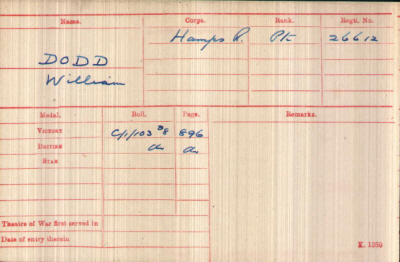 Name. Corps. Rank. Regtl. No.
DODD Hamps R. Pte 26612
William
Medal. Roll. Page. Remarks.
VICTORY C/1/103 B8 896
BRITISH do do
STAR
Theatre of War first served in
Date of entry therein
K. 1380